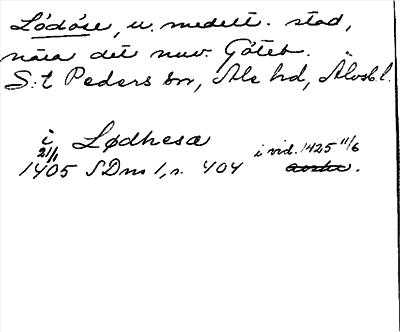 Lödöse, u. medelt. stad,
nära det nuv. Göteb.
S:t Peders sn, Ale hd, Älvsb l.
i Lødhesa
21/1 1405 SDns 1, s. 404 i vid. 1425 11/6